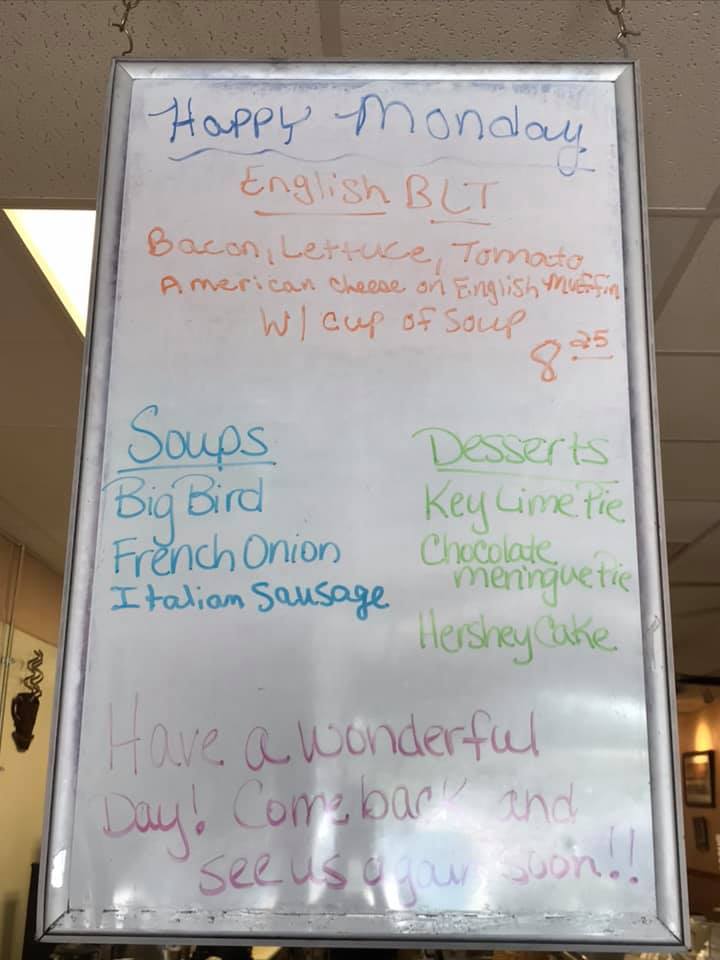 Happy Monday
English BLT
Bacon, Lettuce, Tomato
American Cheese on English Muffin
W/ cup of Soup
8 25
Soups
Big Bird
French Onion
Italian Sausage
Desserts
Key Lime Pie
Chocolate
meringue Pie
Hershey Cake
Have a wonderful
Day! Come back and
see us again soon!!